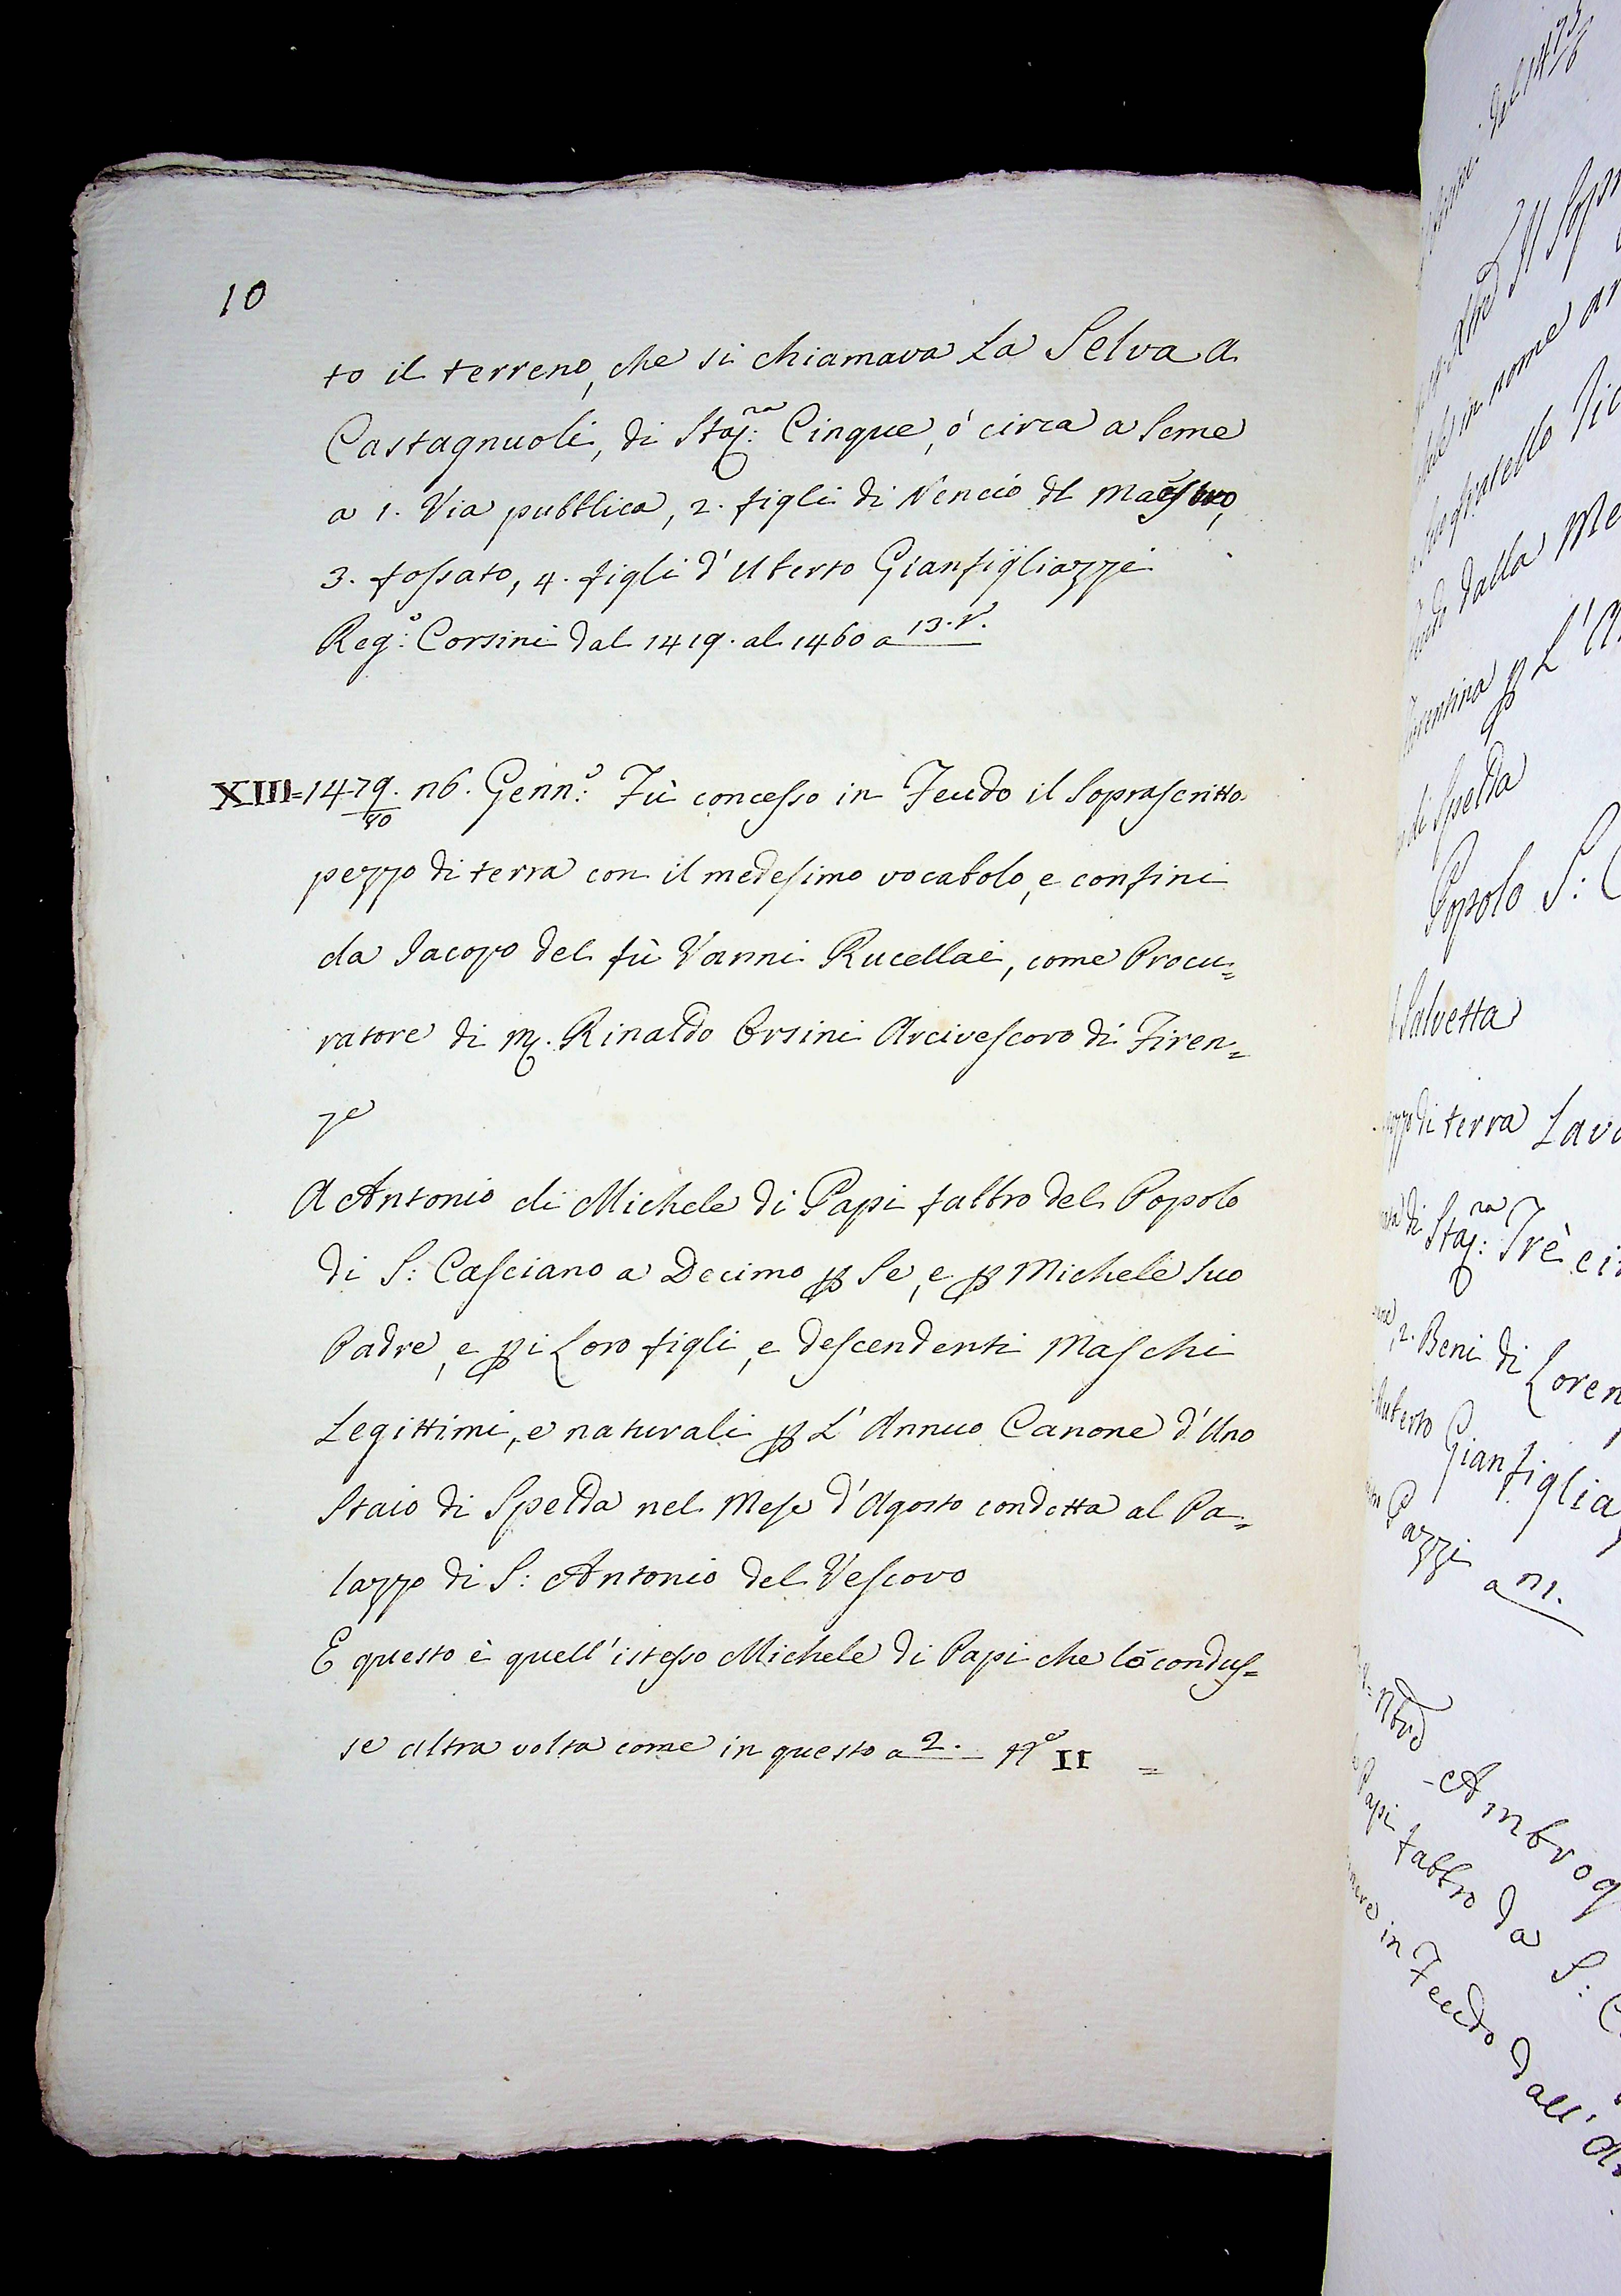 10
to il terreno, che si chiamava La Selva a
Castagnuoli, di Staj:ra Cinque, ò circa a Seme
a 1. Via pubblica, 2. figli di Nencio dl Maestro,
3. fossato, 4. figli d'Uberto Gianfigliazzi
Reg:o Corsini dal 1419. al 1460 a 13. v.
XIII=1479./80 26. Genn:o Fù concesso in Feudo il Soprascritto
pezzo di terra con il medesimo vocabolo, e confini
da Jacopo del fù Vanni Rucellai, come Procu=
ratore di M. Rinaldo Orsini Arcivescovo di Firen=
ze
A Antonio di Michele di Papi fabbro del Popolo
di S: Casciano a Decimo p Se, e p Michele Suo
Padre, e p i Loro figli, e descendenti Maschi
Legittimi, e naturali p L'Annuo Canone d'Uno
Staio di Spelda nel Mese d'Agosto condotta al Pa=
lazzo di S: Antonio del Vescovo
E questo è quell'istesso Michele di Papi che lo condus=
se altra volta come in questo a 2. No II =
del 1475/6
Il Sopr
in nome
fratello
dalla Me
p L'A
di Spelda
Popolo S:
Salvetta
di terra Lavo
di Staj:ra Trè ci
2. Beni di Loren
Gianfiglia
Pazzi a 21.
Ambrog
Papi fabbro da S: C
in Feudo dall'A